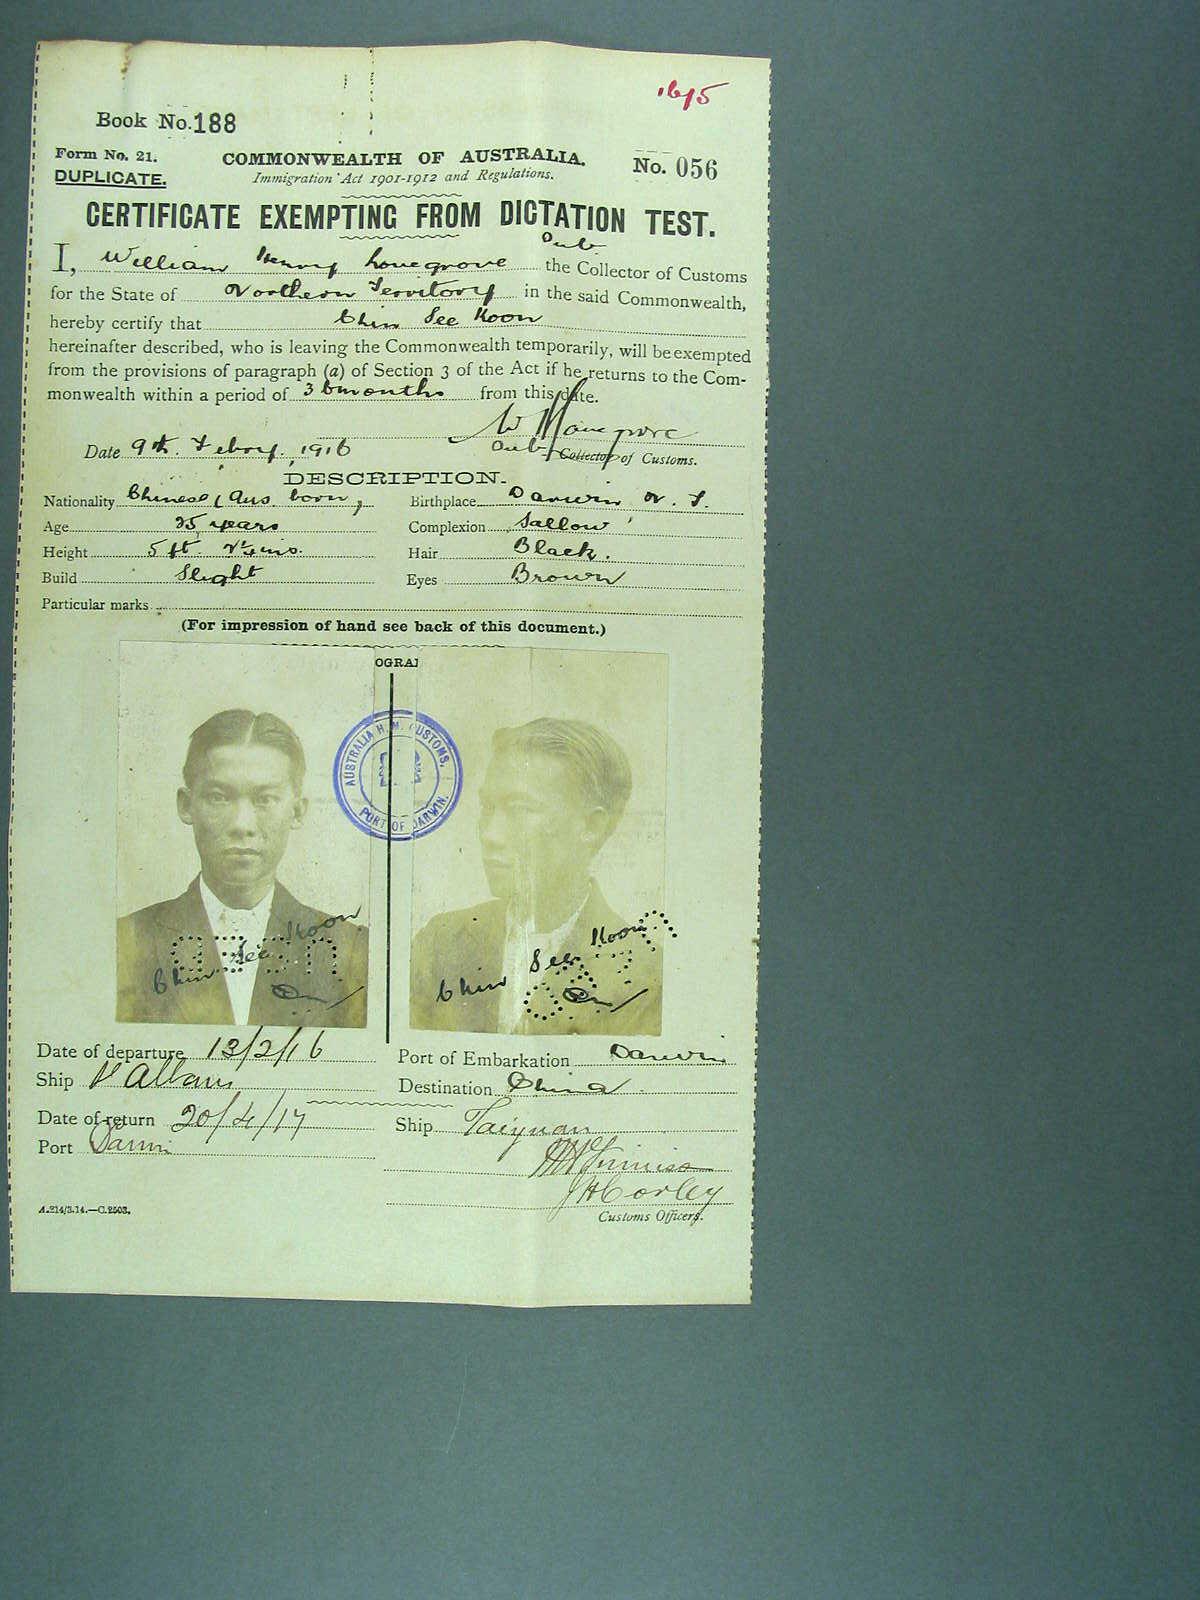 16/5
Book No. 188
Form No. 21.
COMMONWEALTH OF AUSTRALIA.
No. 056
DUPLICATE.
Immigration Act 1901-1912 and Regulations.
CERTIFICATE EXEMPTING FROM DICTATION TEST.
Sub
I, William Henry Lovegrove the Collector of Customs
for the State of Northern Territory in the said Commonwealth,
hereby certify that Chin See Koon
hereinafter described, who is leaving the Commonwealth temporarily, will be exempted
from the provisions of paragraph (a) of Section 3 of the Act if he returns to the Com-
monwealth within a period of 36 months from this date.
W H Lovegrove
Date 9th. Febry. 1916
Sub Collector of Customs.
DESCRIPTION.
Nationality Chinese (Aus. born)
Birthplace Darwin N. T.
Age 25 years
Complexion Sallow
Height 5 ft. 2¼ ins.
Hair Black.
Build Slight
Eyes Brown
Particular marks
(For impression of hand see back of this document.)
OGRA
AUSTRALIA H. M. CUSTOMS.
PORT OF DARWIN.
Chin See Koon
Chin See Koon
Date of departure 13/2/16
Port of Embarkation Darwin
Ship St Albans
Destination China
Date of return 20/4/17
Ship Taiyuan
Port Darwin
JHCorley
A.214/3.14.—C.2503.
Customs Officers.